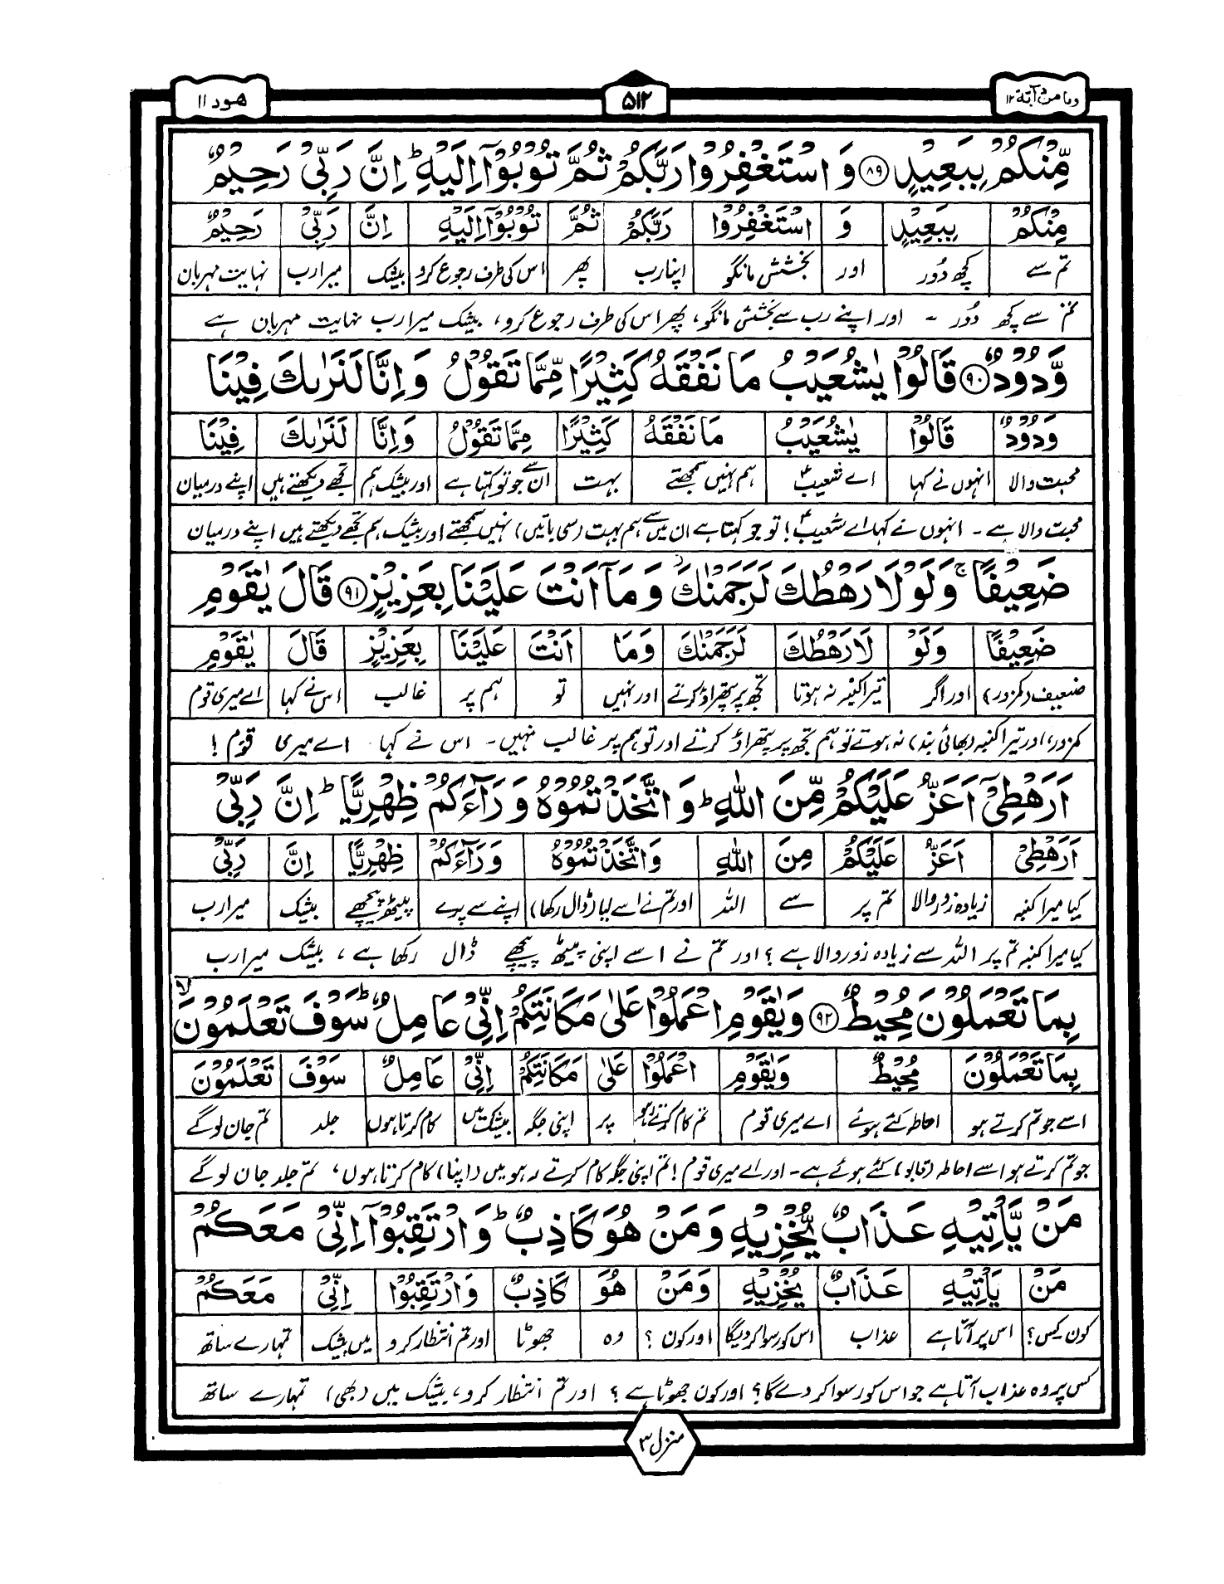 وما من دآبة ۱۲
۵۱۲
هود ۱۱
مِّنْكُمْ بِبَعِيْدٍ ۸۹ وَاسْتَغْفِرُوْا رَبَّكُمْ ثُمَّ تُوْبُوْٓا اِلَيْهِ ؕ اِنَّ رَبِّىْ رَحِيْمٌ
مِنْكُمْ بِبَعِيْدٍ وَ اسْتَغْفِرُوْا رَبَّكُمْ ثُمَّ تُوْبُوْٓا اِلَيْهِ اِنَّ رَبِّىْ رَحِيْمٌ
تم سے کچھ دُور اور بخشش مانگو اپنا رب پھر اس کی طرف رجوع کرو بیشک میرا رب نہایت مہربان
تم سے کچھ دُور ۔ اور اپنے رب سے بخشش مانگو، پھر اس کی طرف رجوع کرو، بیشک میرا رب نہایت مہربان ہے
وَّدُوْدٌ ۹۰ قَالُوْا يٰشُعَيْبُ مَا نَفْقَهُ كَثِيْرًا مِّمَّا تَقُوْلُ وَاِنَّا لَنَرٰىكَ فِيْنَا
وَدُوْدٌ قَالُوْا يٰشُعَيْبُ مَا نَفْقَهُ كَثِيْرًا مِمَّا تَقُوْلُ وَاِنَّا لَنَرٰىكَ فِيْنَا
محبت والا انہوں نے کہا اے شعیبؑ ہم نہیں سمجھتے بہت ان سے جو تو کہتا ہے اور بیشک ہم تجھے دیکھتے ہیں اپنے درمیان
محبت والا ہے ۔ انہوں نے کہا اے شعیبؑ! تو جو کہتا ہے ان میں سے ہم بہت (سی باتیں) نہیں سمجھتے اور بیشک ہم تجھے دیکھتے ہیں اپنے درمیان
ضَعِيْفًا ۚ وَلَوْلَا رَهْطُكَ لَرَجَمْنٰكَ ۫ وَمَآ اَنْتَ عَلَيْنَا بِعَزِيْزٍ ۹۱ قَالَ يٰقَوْمِ
ضَعِيْفًا وَلَوْ لَا رَهْطُكَ لَرَجَمْنٰكَ وَمَا اَنْتَ عَلَيْنَا بِعَزِيْزٍ قَالَ يٰقَوْمِ
ضعیف (کمزور) اور اگر تیرا کنبہ نہ ہوتا تجھ پر پتھراؤ کرتے اور نہیں تو ہم پر غالب اس نے کہا اے میری قوم
کمزور، اور تیرا کنبہ (بھائی بند) نہ ہوتے تو ہم تجھ پر پتھراؤ کرتے اور تو ہم پر غالب نہیں ۔ اس نے کہا اے میری قوم !
اَرَهْطِىْٓ اَعَزُّ عَلَيْكُمْ مِّنَ اللهِ ؕ وَاتَّخَذْتُمُوْهُ وَرَآءَكُمْ ظِهْرِيًّا ؕ اِنَّ رَبِّىْ
اَرَهْطِىْ اَعَزُّ عَلَيْكُمْ مِنَ اللهِ وَاتَّخَذْتُمُوْهُ وَرَآءَكُمْ ظِهْرِيًّا اِنَّ رَبِّىْ
کیا میرا کنبہ زیادہ زور والا تم پر سے اللہ اور تم نے اسے لیا (ڈال رکھا) اپنے سے پرے پیٹھ پیچھے بیشک میرا رب
کیا میرا کنبہ تم پر اللہ سے زیادہ زور والا ہے ؟ اور تم نے اسے اپنی پیٹھ پیچھے ڈال رکھا ہے، بیشک میرا رب
بِمَا تَعْمَلُوْنَ مُحِيْطٌ ۹۲ وَيٰقَوْمِ اعْمَلُوْا عَلٰى مَكَانَتِكُمْ اِنِّىْ عَامِلٌ ؕ سَوْفَ تَعْلَمُوْنَ ۙ
بِمَا تَعْمَلُوْنَ مُحِيْطٌ وَيٰقَوْمِ اعْمَلُوْا عَلٰى مَكَانَتِكُمْ اِنِّىْ عَامِلٌ سَوْفَ تَعْلَمُوْنَ
اسے جو تم کرتے ہو احاطہ کئے ہوئے اے میری قوم تم کام کرتے رہو پر اپنی جگہ بیشک میں کام کرتا ہوں جلد تم جان لوگے
جو تم کرتے ہو اسے احاطہ (قابو) کئے ہوئے ہے ۔ اور اے میری قوم ! تم اپنی جگہ کام کرتے رہو میں (اپنا) کام کرتا ہوں، تم جلد جان لوگے
مَنْ يَّاْتِيْهِ عَذَابٌ يُّخْزِيْهِ وَمَنْ هُوَ كَاذِبٌ ؕ وَارْتَقِبُوْٓا اِنِّىْ مَعَكُمْ
مَنْ يَاْتِيْهِ عَذَابٌ يُخْزِيْهِ وَمَنْ هُوَ كَاذِبٌ وَارْتَقِبُوْا اِنِّىْ مَعَكُمْ
کون کس؟ اس پر آتا ہے عذاب اس کو رسوا کر دیگا اور کون ؟ وہ جھوٹا اور تم انتظار کرو میں بیشک تمہارے ساتھ
کس پر وہ عذاب آتا ہے جو اس کو رسوا کر دے گا؟ اور کون جھوٹا ہے ؟ اور تم انتظار کرو، بیشک میں (بھی) تمہارے ساتھ
منزل ۳